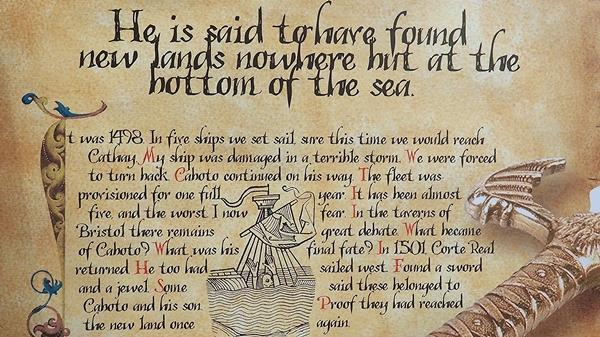 He is said to have found
new lands nowhere but at the
bottom of the sea.
It was 1498. In five ships we set sail, sure this time we would reach
Cathay. My ship was damaged in a terrible storm. We were forced
to turn back. Caboto continued on his way. The fleet was
provisioned for one full year. It has been almost
five, and the worst I now fear. In the taverns of
Bristol there remains great debate. What became
of Caboto? What was his final fate? In 1501, Corte Real
returned. He too had sailed west. Found a sword
and a jewel. Some said these belonged to
Caboto and his son. Proof they had reached
the new land once again.